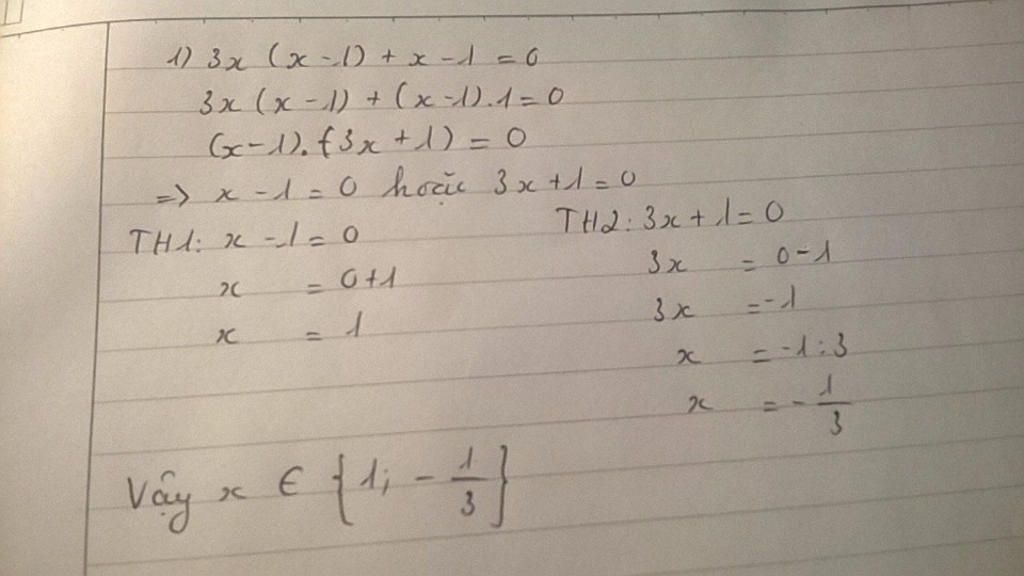 1) 3x (x - 1) + x - 1 = 0
3x (x - 1) + (x - 1).1 = 0
(x - 1).(3x + 1) = 0
=> x - 1 = 0 hoặc 3x + 1 = 0
TH1: x - 1 = 0
x = 0+1
x = 1
TH2: 3x + 1 = 0
3x = 0 - 1
3x = -1
x = -1 : 3
x = - 1/3
Vậy x ∈ {1; - 1/3}